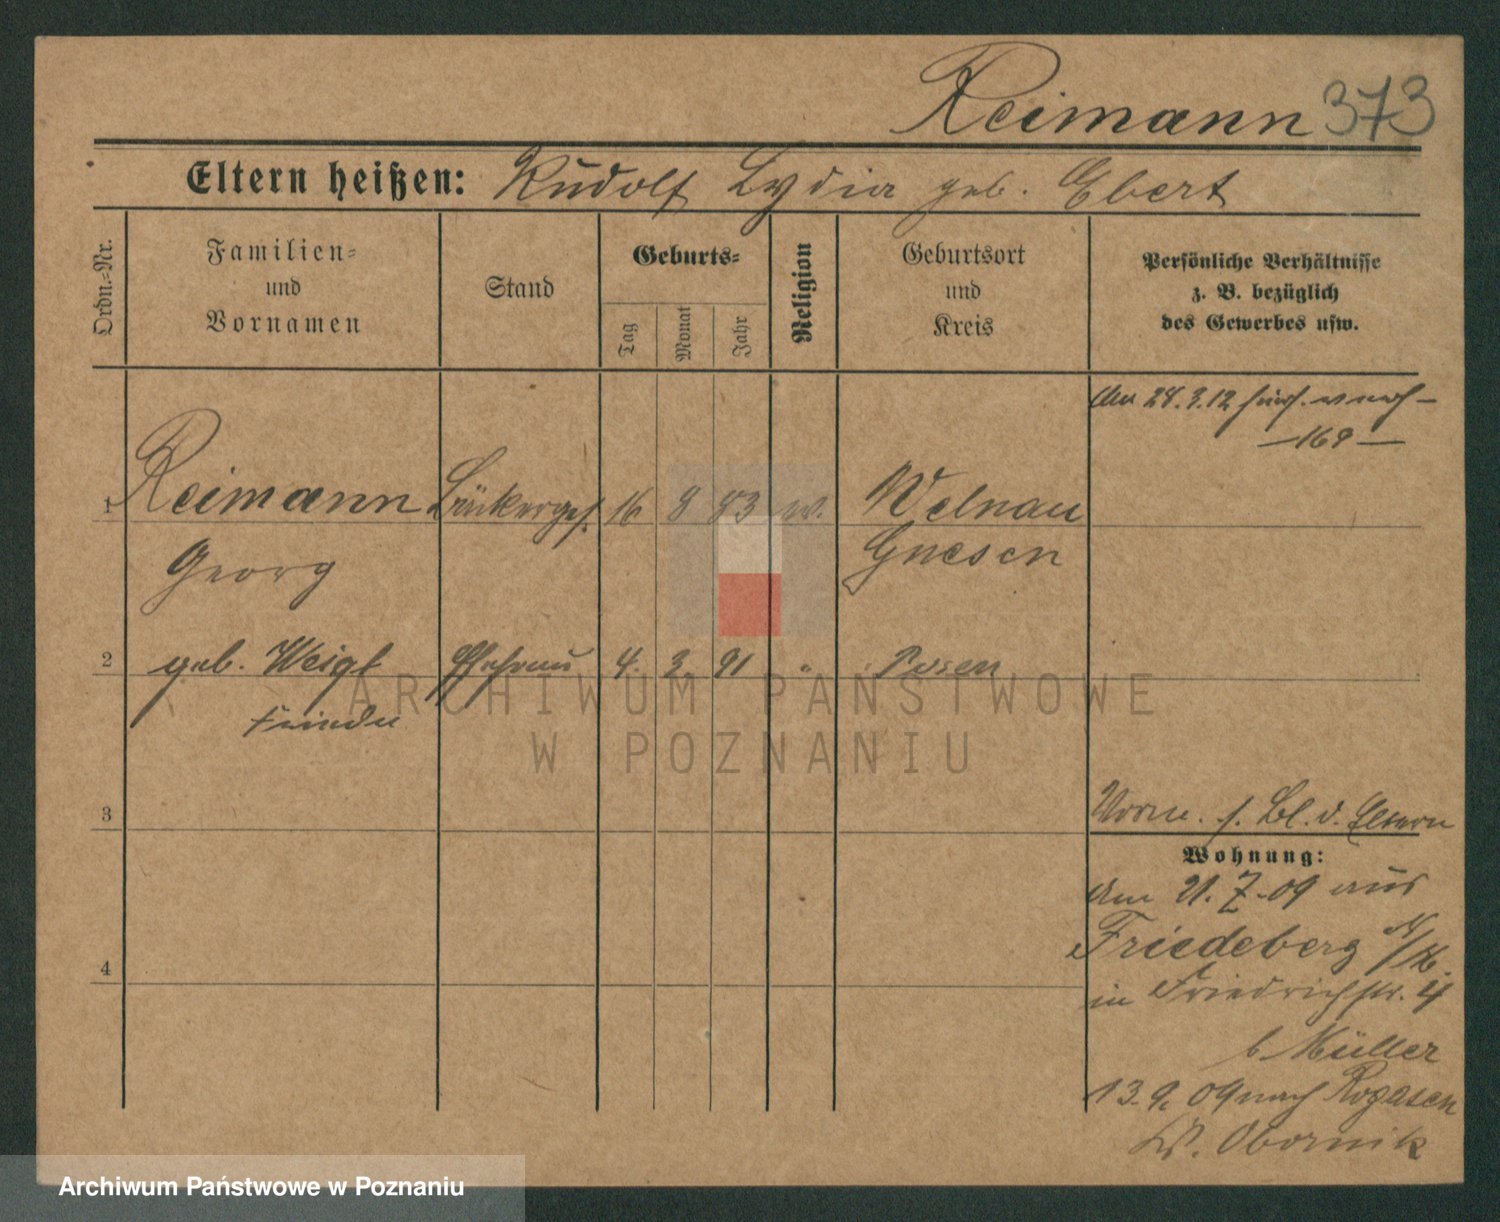 Reimann 373
Eltern heißen: Rudolf Lydia geb. Ebert
Ordn.=Nr.
Familien=
und
Vornamen
Stand
Geburts=
Tag
Monat
Jahr
Religion
Geburtsort
und
Kreis
Persönliche Verhältnisse
z. B. bezüglich
des Gewerbes usw.
Am 24. 3. 12
— 169 —
1 Reimann 16 8 83 Welnau
Georg Gnesen
2 geb. Weigt Ehefrau 4. 3. 91 " Posen
ARCHIWUM PAŃSTWOWE
W POZNANIU
3
4
f. Bl. d. Eltern
Wohnung:
Am 21. 7. 09 aus
Friedeberg N/M.
in Friedrichstr. 4
b Müller
13. 9. 09 nach Rogasen
Obornik
Archiwum Państwowe w Poznaniu